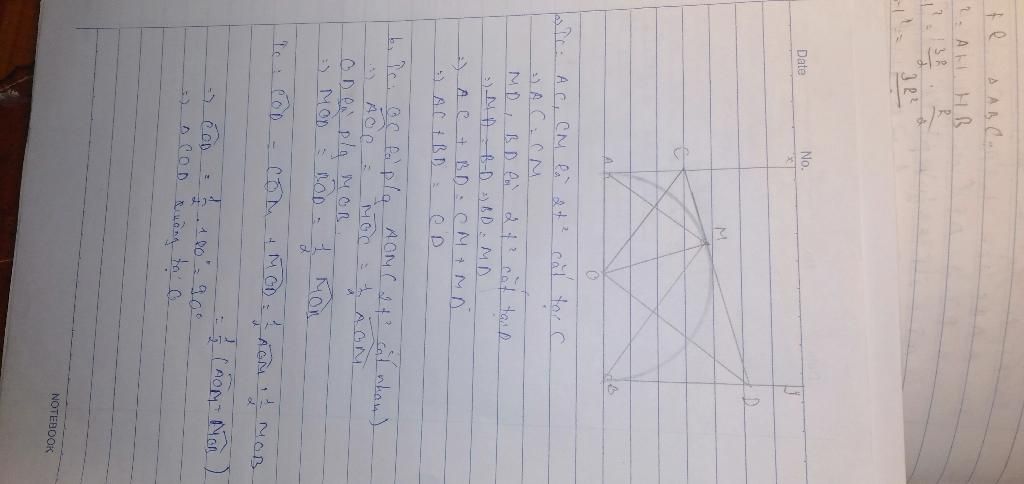 Date
No.
x
y
C
M
D
A
O
B
a, Tc: AC, CM là 2t² cắt tại C
=> AC = CM
MD, BD là 2t² cắt tại D
=> MD = BD => BD = MD
=> AC + BD = CM + MD
=> AC + BD = CD
b, Tc: OC là p/g AOM (2t² cắt nhau)
=> AOC = MOC = 1/2 AOM
OD là p/g MOB
=> MOD = BOD = 1/2 MOB
Tc: COD = COM + MOD = 1/2 AOM + 1/2 MOB
= 1/2 (AOM + MOB)
=> COD = 1/2 . 180° = 90°
=> Δ COD vuông tại O
NOTEBOOK
Δ ABC
² = AH HB